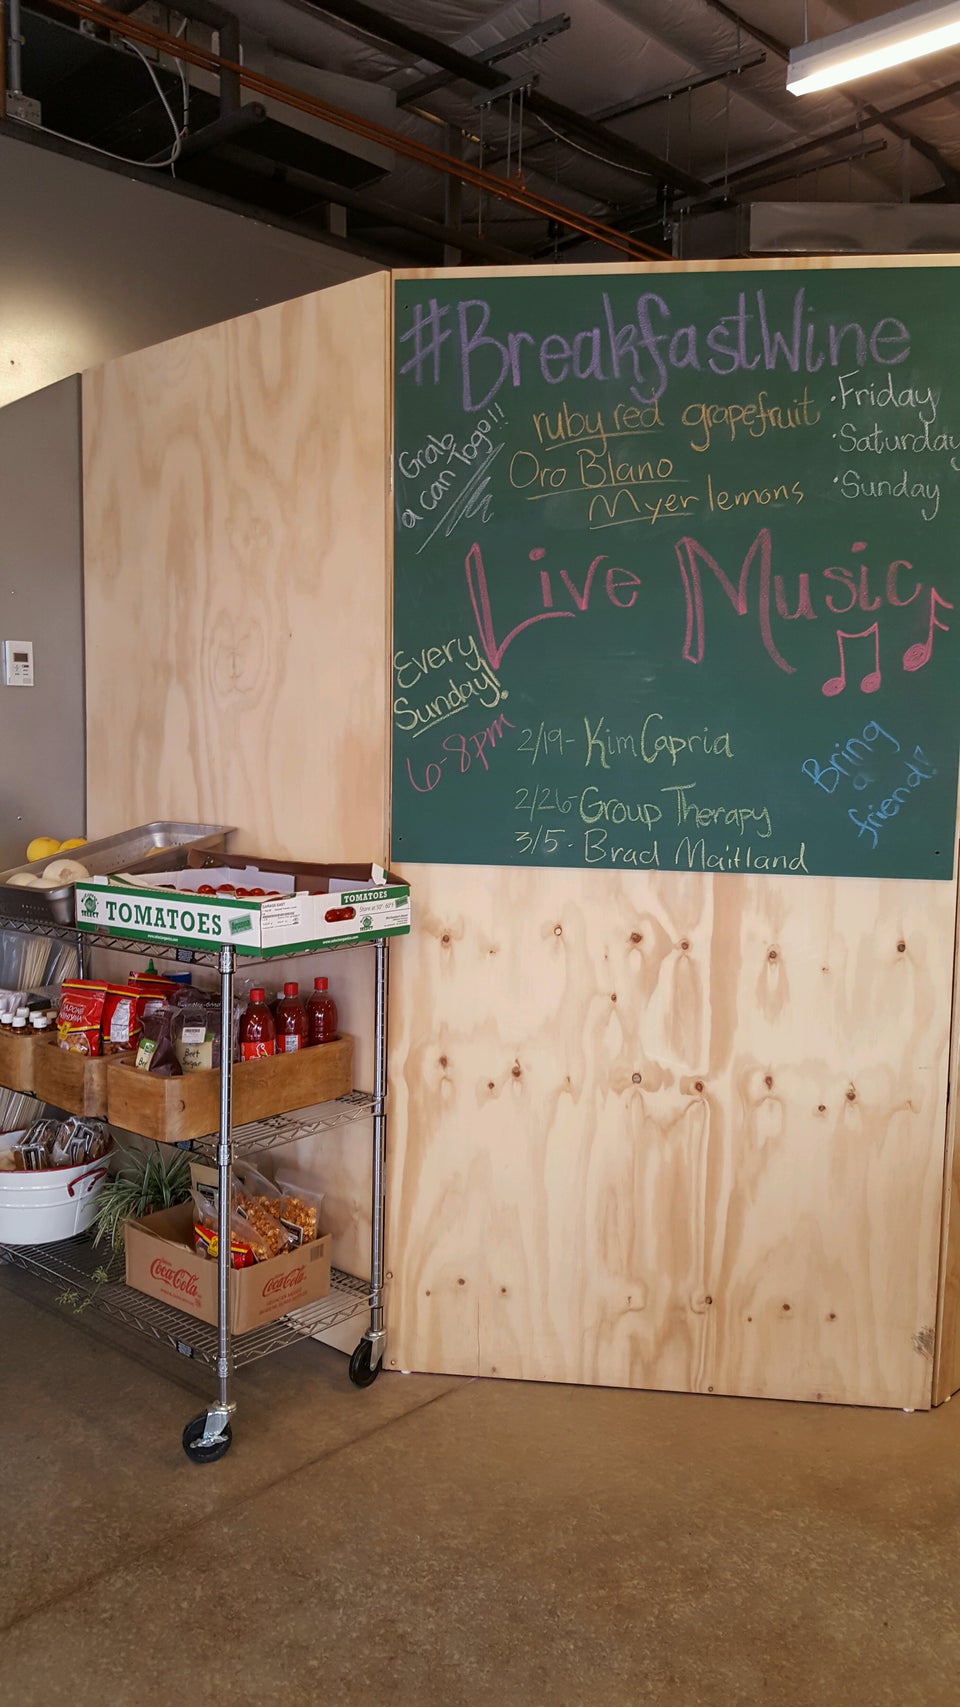 #BreakfastWine
Grab
a can Togo!!!
ruby red grapefruit
Oro Blano
Myer lemons
·Friday
·Saturday
·Sunday
Live Music
Every
Sunday!
6-8pm
2/19- Kim Capria
2/26- Group Therapy
3/5- Brad Maitland
Bring
a
friend!
SELECT
TOMATOES
TOMATOES
SELECT
Beet
Sugar
Coca-Cola
Coca-Cola